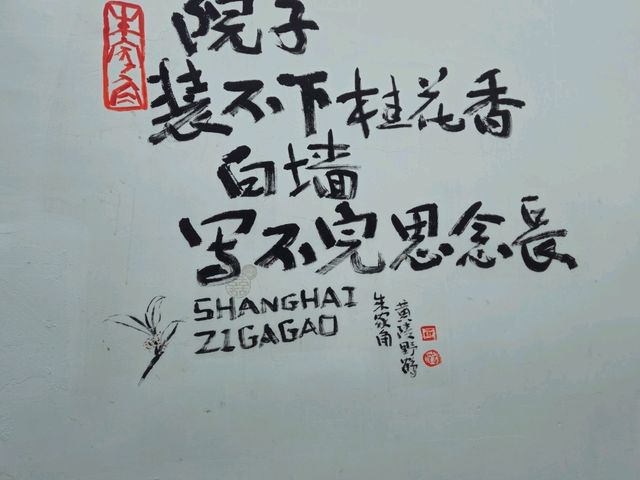 院子
装不下桂花香
白墙
写不完思念長
SHANGHAI
ZIGAGAO
朱家角
黄陵野鹤